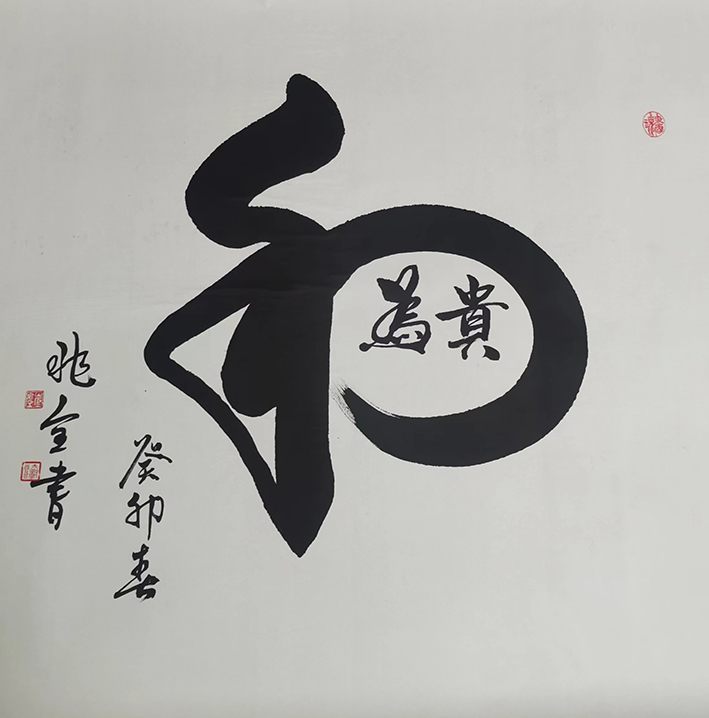 和
為貴
癸卯春
兆全書